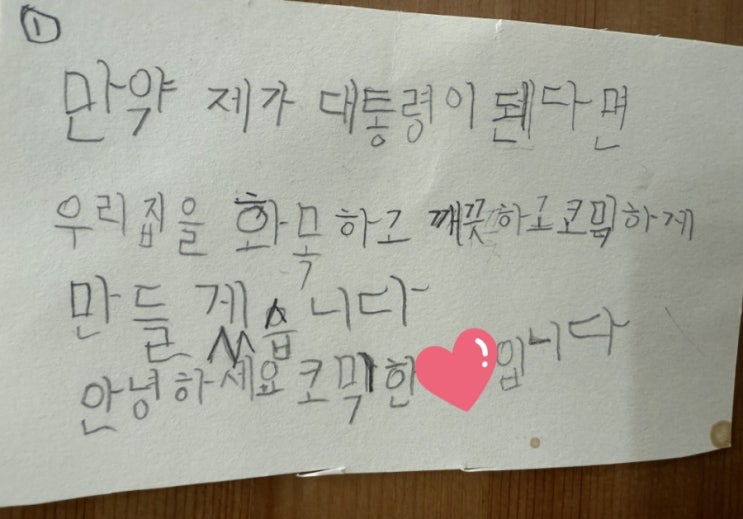 ①
만약 제가 대통령이 됀다면
우리집을 화목하고 깨끗하고코믹하게
만들겠습니다
안녕하세요 코믹한입니다